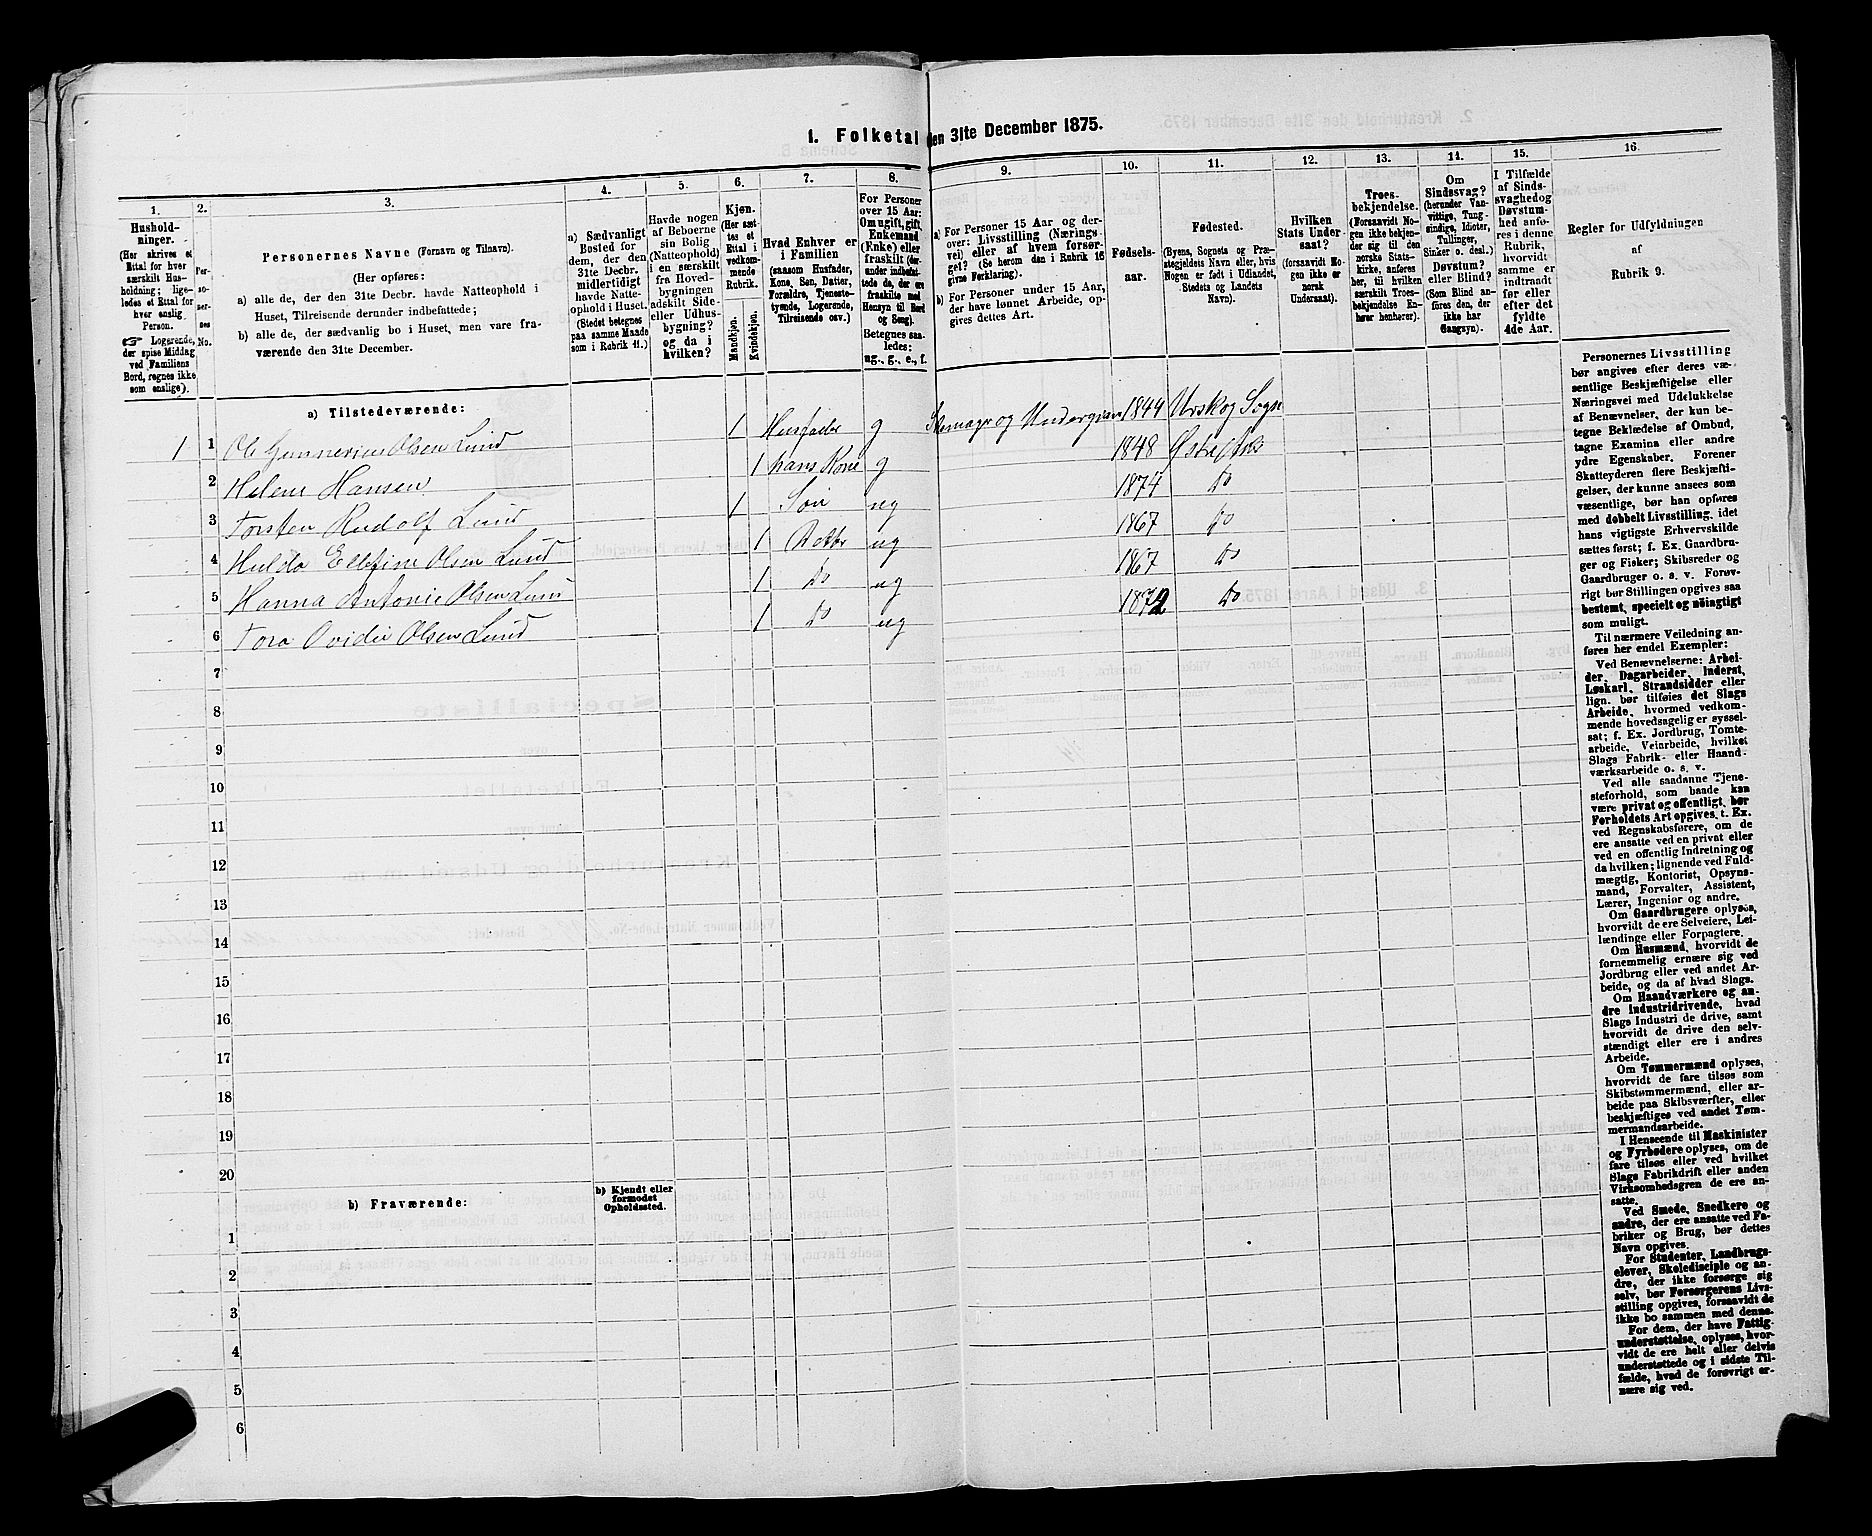 1. Folketal den 31te December 1875.
1.
Hushold-
ninger.
(Her skrives et
Ettal for hver
særskilt Hus-
holdning; lige-
ledes et Ettal for
hver enslig
Person.
☞ Logerende,
der spise Middag
ved Familiens
Bord, regnes ikke
som enslige).
2.
Per-
so-
ner-
nes
No.
3.
Personernes Navne (Fornavn og Tilnavn).
(Her opføres:
a) alle de, der den 31te Decbr. havde Natteophold i
Huset, Tilreisende derunder indbefattede;
b) alle de, der sædvanlig bo i Huset, men vare fra-
værende den 31te December.
4.
a) Sædvanligt
Bosted for
dem, der den
31te Decbr.
midlertidigt
havde Natte-
ophold i Huset.
(Stedet betegnes
paa samme Maade
som i Rubrik 11.)
5.
Havde nogen
af Beboerne
sin Bolig
(Natteophold)
i en særskilt
fra Hoved-
bygningen
adskilt Side-
eller Udhus-
bygning?
og da i
hvilken?
6.
Kjøn.
(Her sæt-
tes et
Ettal i
vedkom-
mende
Rubrik.
Mandkjøn.
Kvindekjøn.
7.
Hvad Enhver er
i Familien
(saasom Husfader,
Kone, Søn, Datter,
Forældre, Tjeneste-
tyende, Logerende,
Tilreisende osv.)
8.
For Personer
over 15 Aar:
Om ugift, gift,
Enkemand
(Enke) eller
fraskilt (der-
under indbefat-
tede de, der ere
fraskilte med
Hensyn til Bord
og Seng).
Betegnes saa-
ledes:
ug., g., e., f.
9.
a) For Personer 15 Aar og der-
over: Livsstilling (Nærings-
vei) eller af hvem forsør-
get? (Se herom den i Rubrik 16
givne Forklaring).
b) For Personer under 15 Aar,
der have lønnet Arbeide, op-
gives dettes Art.
10.
Fødsels-
aar.
11.
Fødested.
(Byens, Sognets og Præ-
stegjeldets Navn eller, hvis
Nogen er født i Udlandet,
Stedets og Landets
Navn).
12.
Hvilken
Stats Under-
saat?
(forsaavidt No-
gen ikke er
norsk
Undersaat).
13.
Troes-
bekjendelse.
(Forsaavidt No-
gen ikke bekjen-
der sig til den
norske Stats-
kirke, anføres
her, til hvilken
særskilt Troes-
bekjendelse En-
hver henhører).
14.
Om
Sindssvag?
(herunder Van-
vittige, Tung-
sindige, Idioter,
Tullinger,
Sinker o. desl.)
Døvstum?
eller Blind?
(Som Blind an-
føres den, der
ikke har
Gangsyn).
15.
I Tilfælde
af Sinds-
svaghed og
Døvstum-
hed anfø-
res i denne
Rubrik,
hvorvidt
samme er
indtraadt
før eller
efter det
fyldte
4de Aar.
16.
Regler for Udfyldningen
af
Rubrik 9.
a) Tilstedeværende:
1 1 Ole Olsen Lund 1 Husfader g 1844 Urskog Sogn
2 Helene Hansen 1 hans Kone g 1848 Østre Aker
3 Torsten Rudolf Lund 1 Søn ug 1874 do
4 Hulda Ellefine Olsen Lund 1 Datter ug 1867 do
5 Hanna Antonie Olsen Lund 1 do ug 1867 do
6 Tora Ovidie Olsen Lund 1 do ug 1872 do
7
8
9
10
11
12
13
14
15
16
17
18
19
20
b) Fraværende:
b) Kjendt eller
formodet
Opholdssted.
1
2
3
4
5
6
Personernes Livsstilling
bør angives efter deres væ-
sentlige Beskjæftigelse eller
Næringsvei med Udelukkelse
af Benævnelser, der kun be-
tegne Beklædelse af Ombud,
tagne Examina eller andre
ydre Egenskaber. Forener
Skatteyderen flere Beskjæfti-
gelser, der kunne ansees som
væsentlige, bør han opføres
med dobbelt Livsstilling, idet
hans vigtigste Erhvervskilde
sættes først; f. Ex. Gaardbru-
ger og Fisker; Skibsreder og
Gaardbruger o. s. v. Forøv-
rigt bør Stillingen opgives saa
bestemt, specielt og nöiagtigt
som muligt.
Til nærmere Veiledning an-
føres her endel Exempler:
Ved Benævnelserne: Arbei-
der, Dagarbeider, Inderst,
Løskarl, Strandsidder eller
lign. bør tilføies det Slags
Arbeide, hvormed vedkom-
mende hovedsagelig er syssel-
sat; f. Ex. Jordbrug, Tomte-
arbeide, Veiarbeide, hvilket
Slags Fabrik- eller Haand-
værksarbeide o. s. v.
Ved alle saadanne Tjene-
steforhold, som baade kan
være privat og offentligt, bør
Forholdets Art opgives, t. Ex.
ved Regnskabsførere, om de
ere ansatte ved en privat eller
ved en offentlig Indretning og
da hvilken; lignende ved Fuld-
mægtig, Kontorist, Opsyns-
mand, Forvalter, Assistent,
Lærer, Ingeniør og andre.
Om Gaardbrugere oplyses,
hvorvidt de ere Selveiere, Lei-
lændinge eller Forpagtere.
Om Husmænd, hvorvidt de
fornemmelig ernære sig ved
Jordbrug eller ved andet Ar-
beide, og da af hvad Slags.
Om Haandværkere og an-
dre Industridrivende, hvad
Slags Industri de drive, samt
hvorvidt de drive den selv-
stændigt eller ere i andres
Arbeide.
Om Tømmermænd oplyses,
hvorvidt de fare tilsøs som
Skibstømmermænd, eller ar-
beide paa Skibsværfter, eller
beskjæftiges ved andet Tøm-
mermandsarbeide.
I Henseende til Maskinister
og Fyrbødere oplyses, om de
fare tilsøs eller ved hvilket
Slags Fabrikdrift eller anden
Virksomhedsgren de ere an-
satte.
Ved Smede, Snedkere og
andre, der ere ansatte ved Fa-
briker og Brug, bør dettes
Navn opgives.
For Studenter, Landbrugs-
elever, Skoledisciple og an-
dre, der ikke forsørge sig
selv, bør Forsørgerens Livs-
stilling opgives, forsaavidt de
ikke bo sammen med denne.
For dem, der have Fattig-
understøttelse, oplyses, hvor-
vidt de ere helt eller delvis
understøttede og i sidste Til-
fælde, hvad de forøvrigt er-
nære sig ved.